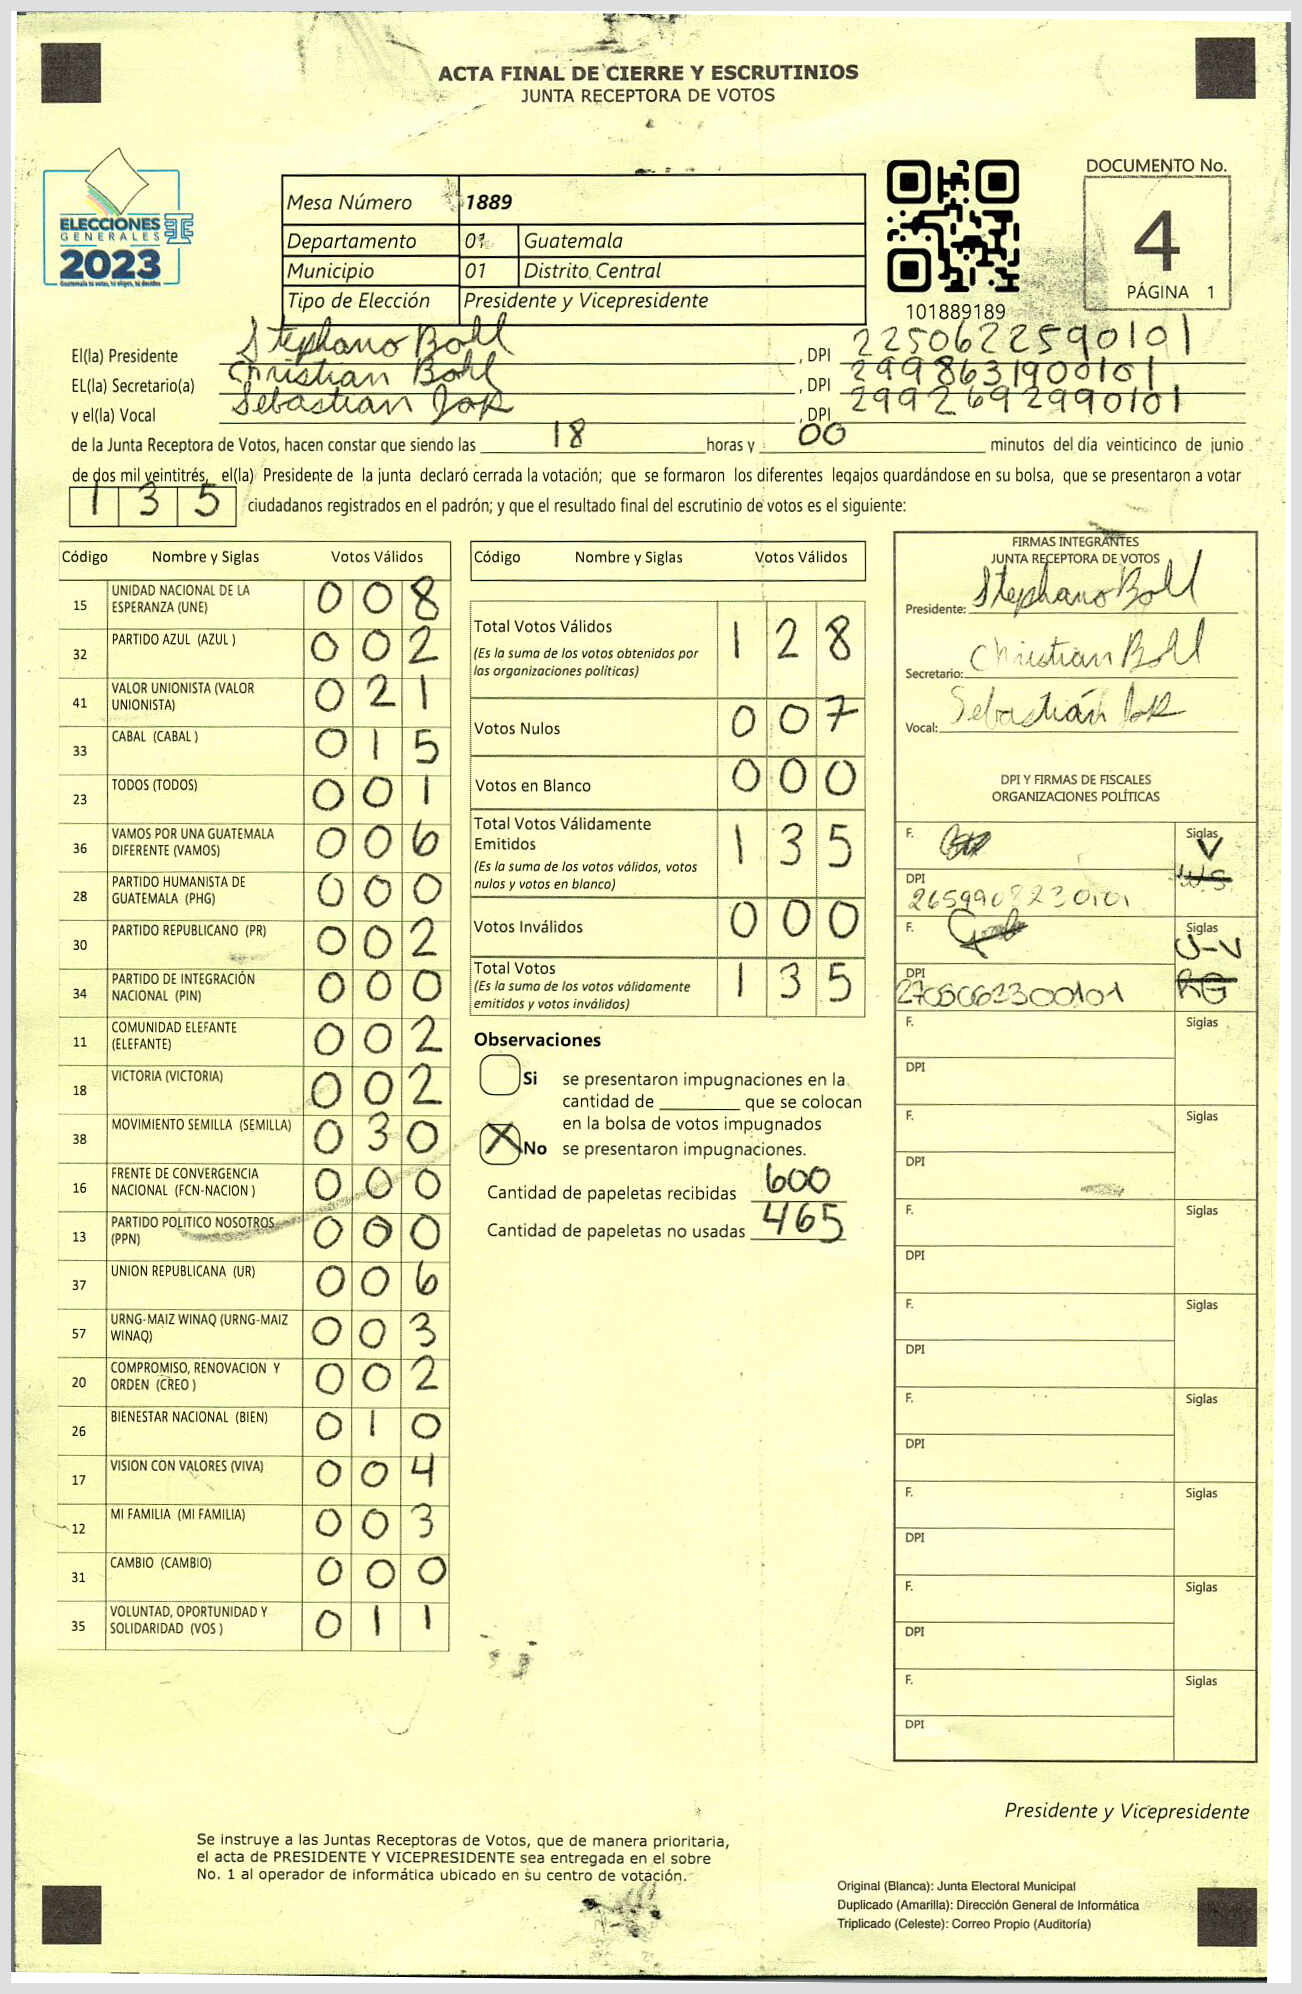 ACTA FINAL DE CIERRE Y ESCRUTINIOS
JUNTA RECEPTORA DE VOTOS
ELECCIONES
GENERALES
2023
Guatemala tú votas, tú eliges, tú decides
Mesa Número 1889
Departamento 01 Guatemala
Municipio 01 Distrito Central
Tipo de Elección Presidente y Vicepresidente
101889189
DOCUMENTO No.
4
PÁGINA 1
El(la) Presidente Stephano Boll , DPI 2250622590101
EL(la) Secretario(a) Christian Bohl , DPI 2998631900101
y el(la) Vocal Sebastián , DPI 2992692990101
de la Junta Receptora de Votos, hacen constar que siendo las 18 horas y 00 minutos del día veinticinco de junio
de dos mil veintitrés, el(la) Presidente de la junta declaró cerrada la votación; que se formaron los diferentes legajos guardándose en su bolsa, que se presentaron a votar
135 ciudadanos registrados en el padrón; y que el resultado final del escrutinio de votos es el siguiente:
Código Nombre y Siglas Votos Válidos
15 UNIDAD NACIONAL DE LA ESPERANZA (UNE) 008
32 PARTIDO AZUL (AZUL ) 002
41 VALOR UNIONISTA (VALOR UNIONISTA) 021
33 CABAL (CABAL ) 015
23 TODOS (TODOS) 001
36 VAMOS POR UNA GUATEMALA DIFERENTE (VAMOS) 006
28 PARTIDO HUMANISTA DE GUATEMALA (PHG) 000
30 PARTIDO REPUBLICANO (PR) 002
34 PARTIDO DE INTEGRACIÓN NACIONAL (PIN) 000
11 COMUNIDAD ELEFANTE (ELEFANTE) 002
18 VICTORIA (VICTORIA) 002
38 MOVIMIENTO SEMILLA (SEMILLA) 030
16 FRENTE DE CONVERGENCIA NACIONAL (FCN-NACION ) 000
13 PARTIDO POLITICO NOSOTROS (PPN) 000
37 UNION REPUBLICANA (UR) 006
57 URNG-MAIZ WINAQ (URNG-MAIZ WINAQ) 003
20 COMPROMISO, RENOVACION Y ORDEN (CREO ) 002
26 BIENESTAR NACIONAL (BIEN) 010
17 VISION CON VALORES (VIVA) 004
12 MI FAMILIA (MI FAMILIA) 003
31 CAMBIO (CAMBIO) 000
35 VOLUNTAD, OPORTUNIDAD Y SOLIDARIDAD (VOS ) 011
Código Nombre y Siglas Votos Válidos
Total Votos Válidos 128
(Es la suma de los votos obtenidos por
las organizaciones políticas)
Votos Nulos 007
Votos en Blanco 000
Total Votos Válidamente
Emitidos 135
(Es la suma de los votos válidos, votos
nulos y votos en blanco)
Votos Inválidos 000
Total Votos 135
(Es la suma de los votos válidamente
emitidos y votos inválidos)
Observaciones
Si se presentaron impugnaciones en la
cantidad de ________ que se colocan
en la bolsa de votos impugnados
X No se presentaron impugnaciones.
Cantidad de papeletas recibidas 600
Cantidad de papeletas no usadas 465
FIRMAS INTEGRANTES
JUNTA RECEPTORA DE VOTOS
Presidente: Stephano Boll
Secretario: Christian Boll
Vocal: Sebastián
DPI Y FIRMAS DE FISCALES
ORGANIZACIONES POLÍTICAS
F. Siglas V
DPI 2659908230101 W.S.
F. Siglas U-V
DPI 2705062300101 RG
F. Siglas
DPI
F. Siglas
DPI
F. Siglas
DPI
F. Siglas
DPI
F. Siglas
DPI
F. Siglas
DPI
F. Siglas
DPI
F. Siglas
DPI
Presidente y Vicepresidente
Se instruye a las Juntas Receptoras de Votos, que de manera prioritaria,
el acta de PRESIDENTE Y VICEPRESIDENTE sea entregada en el sobre
No. 1 al operador de informática ubicado en su centro de votación.
Original (Blanca): Junta Electoral Municipal
Duplicado (Amarilla): Dirección General de Informática
Triplicado (Celeste): Correo Propio (Auditoría)